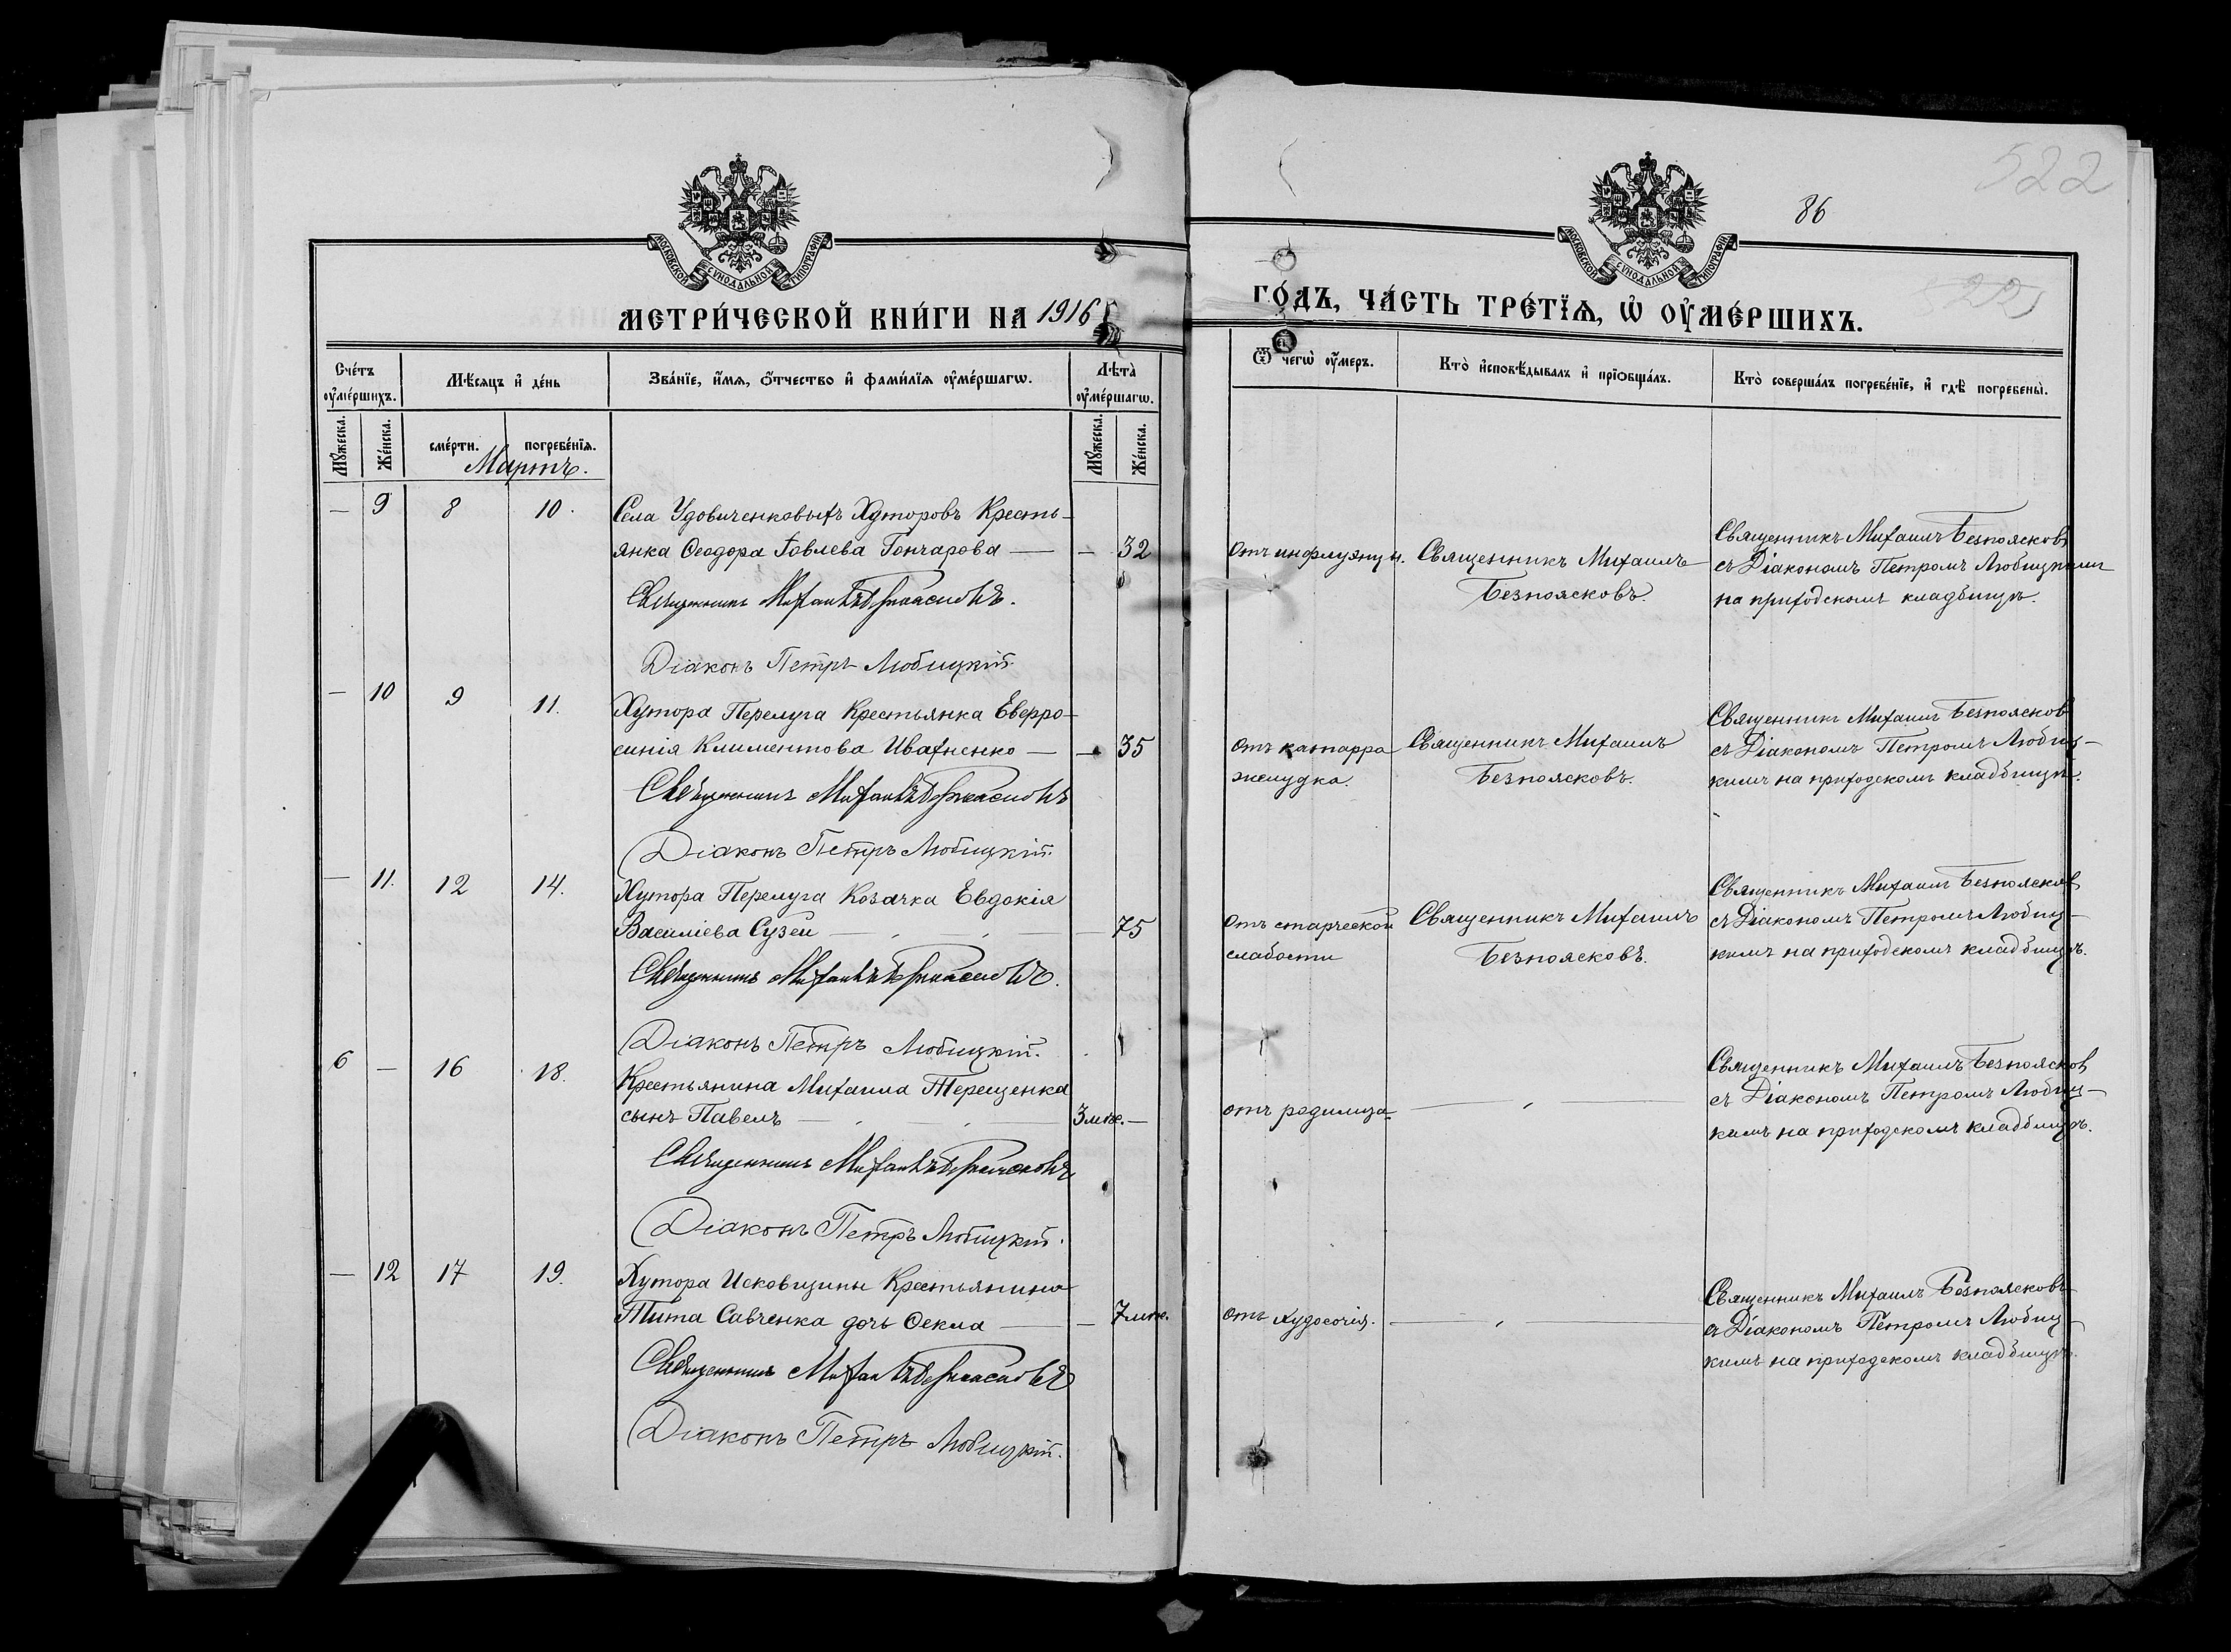 522
86
МОСКОВСКОЙ СѴНОДАЛЬНОЙ ТИПОГРАФІИ
МОСКОВСКОЙ СѴНОДАЛЬНОЙ ТИПОГРАФІИ
МЕТРИ́ЧЕСКОЙ КНИ́ГИ НА 1916
ГО́ДЪ, ЧА́СТЬ ТРЕ́ТЇѦ, Ѡ҆ ОУ҆МЕ́РШИХЪ.
Сче́тъ оу҆ме́ршихъ.
Мꙋ́жеска.
Же́нска.
Мѣ́сяцъ и҆ де́нь
сме́рти.
погребе́нїѧ.
Зва́нїе, и҆́мѧ, ѻ҆́тчество и҆ фами́лїѧ оу҆ме́ршагѡ.
Лѣ́та̀ оу҆ме́ршагѡ.
Мꙋ́жеска.
Же́нска.
Ѿ чегѡ̀ оу҆́меръ.
Кто̀ и҆сповѣ́дывалъ и҆ прїѻбща́лъ.
Кто̀ соверша́лъ погребе́нїе, и҆ гдѣ̀ погребены̀.
Мартъ.
— 9 8 10.
Села Удовиченковыхъ Хуторовъ Кресть-
янка Ѳеодора Іовлева Гончарова — — 32
Священникъ Михаилъ Безпоясковъ.
Діаконъ Петръ Любицкій.
отъ инфлуэнцы.
Священникъ Михаилъ
Безпоясковъ.
Священникъ Михаилъ Безпоясковъ
съ Діакономъ Петромъ Любицкимъ
на приходскомъ кладбищѣ.
— 10 9 11.
Хутора Перелуга Крестьянка Евфро-
синія Климентова Ивахненко — — 35
Священникъ Михаилъ Безпоясковъ
Діаконъ Петръ Любицкій.
отъ катарра
желудка.
Священникъ Михаилъ
Безпоясковъ.
Священникъ Михаилъ Безпоясковъ
съ Діакономъ Петромъ Любиц-
кимъ на приходскомъ кладбищѣ.
— 11. 12 14.
Хутора Перелуга Козачка Евдокія
Василіева Сузеи — — 75
Священникъ Михаилъ Безпоясковъ.
Діаконъ Петръ Любицкій.
отъ старческой
слабости
Священникъ Михаилъ
Безпоясковъ.
Священникъ Михаилъ Безпоясковъ
съ Діакономъ Петромъ Любиц-
кимъ на приходскомъ кладбищѣ.
6 — 16 18.
Крестьянина Михаила Терещенка
сынъ Павелъ — 3 мѣс. —
Священникъ Михаилъ Безпоясковъ
Діаконъ Петръ Любицкій.
отъ родимца
Священникъ Михаилъ Безпоясковъ
съ Діакономъ Петромъ Любиц-
кимъ на приходскомъ кладбищѣ.
— 12 17 19.
Хутора Исковщины Крестьянина
Тита Савченка дочь Ѳекла — — 7 мѣс.
Священникъ Михаилъ Безпоясковъ
Діаконъ Петръ Любицкій.
отъ худосочія.
Священникъ Михаилъ Безпоясковъ
съ Діакономъ Петромъ Любиц-
кимъ на приходскомъ кладбищѣ.